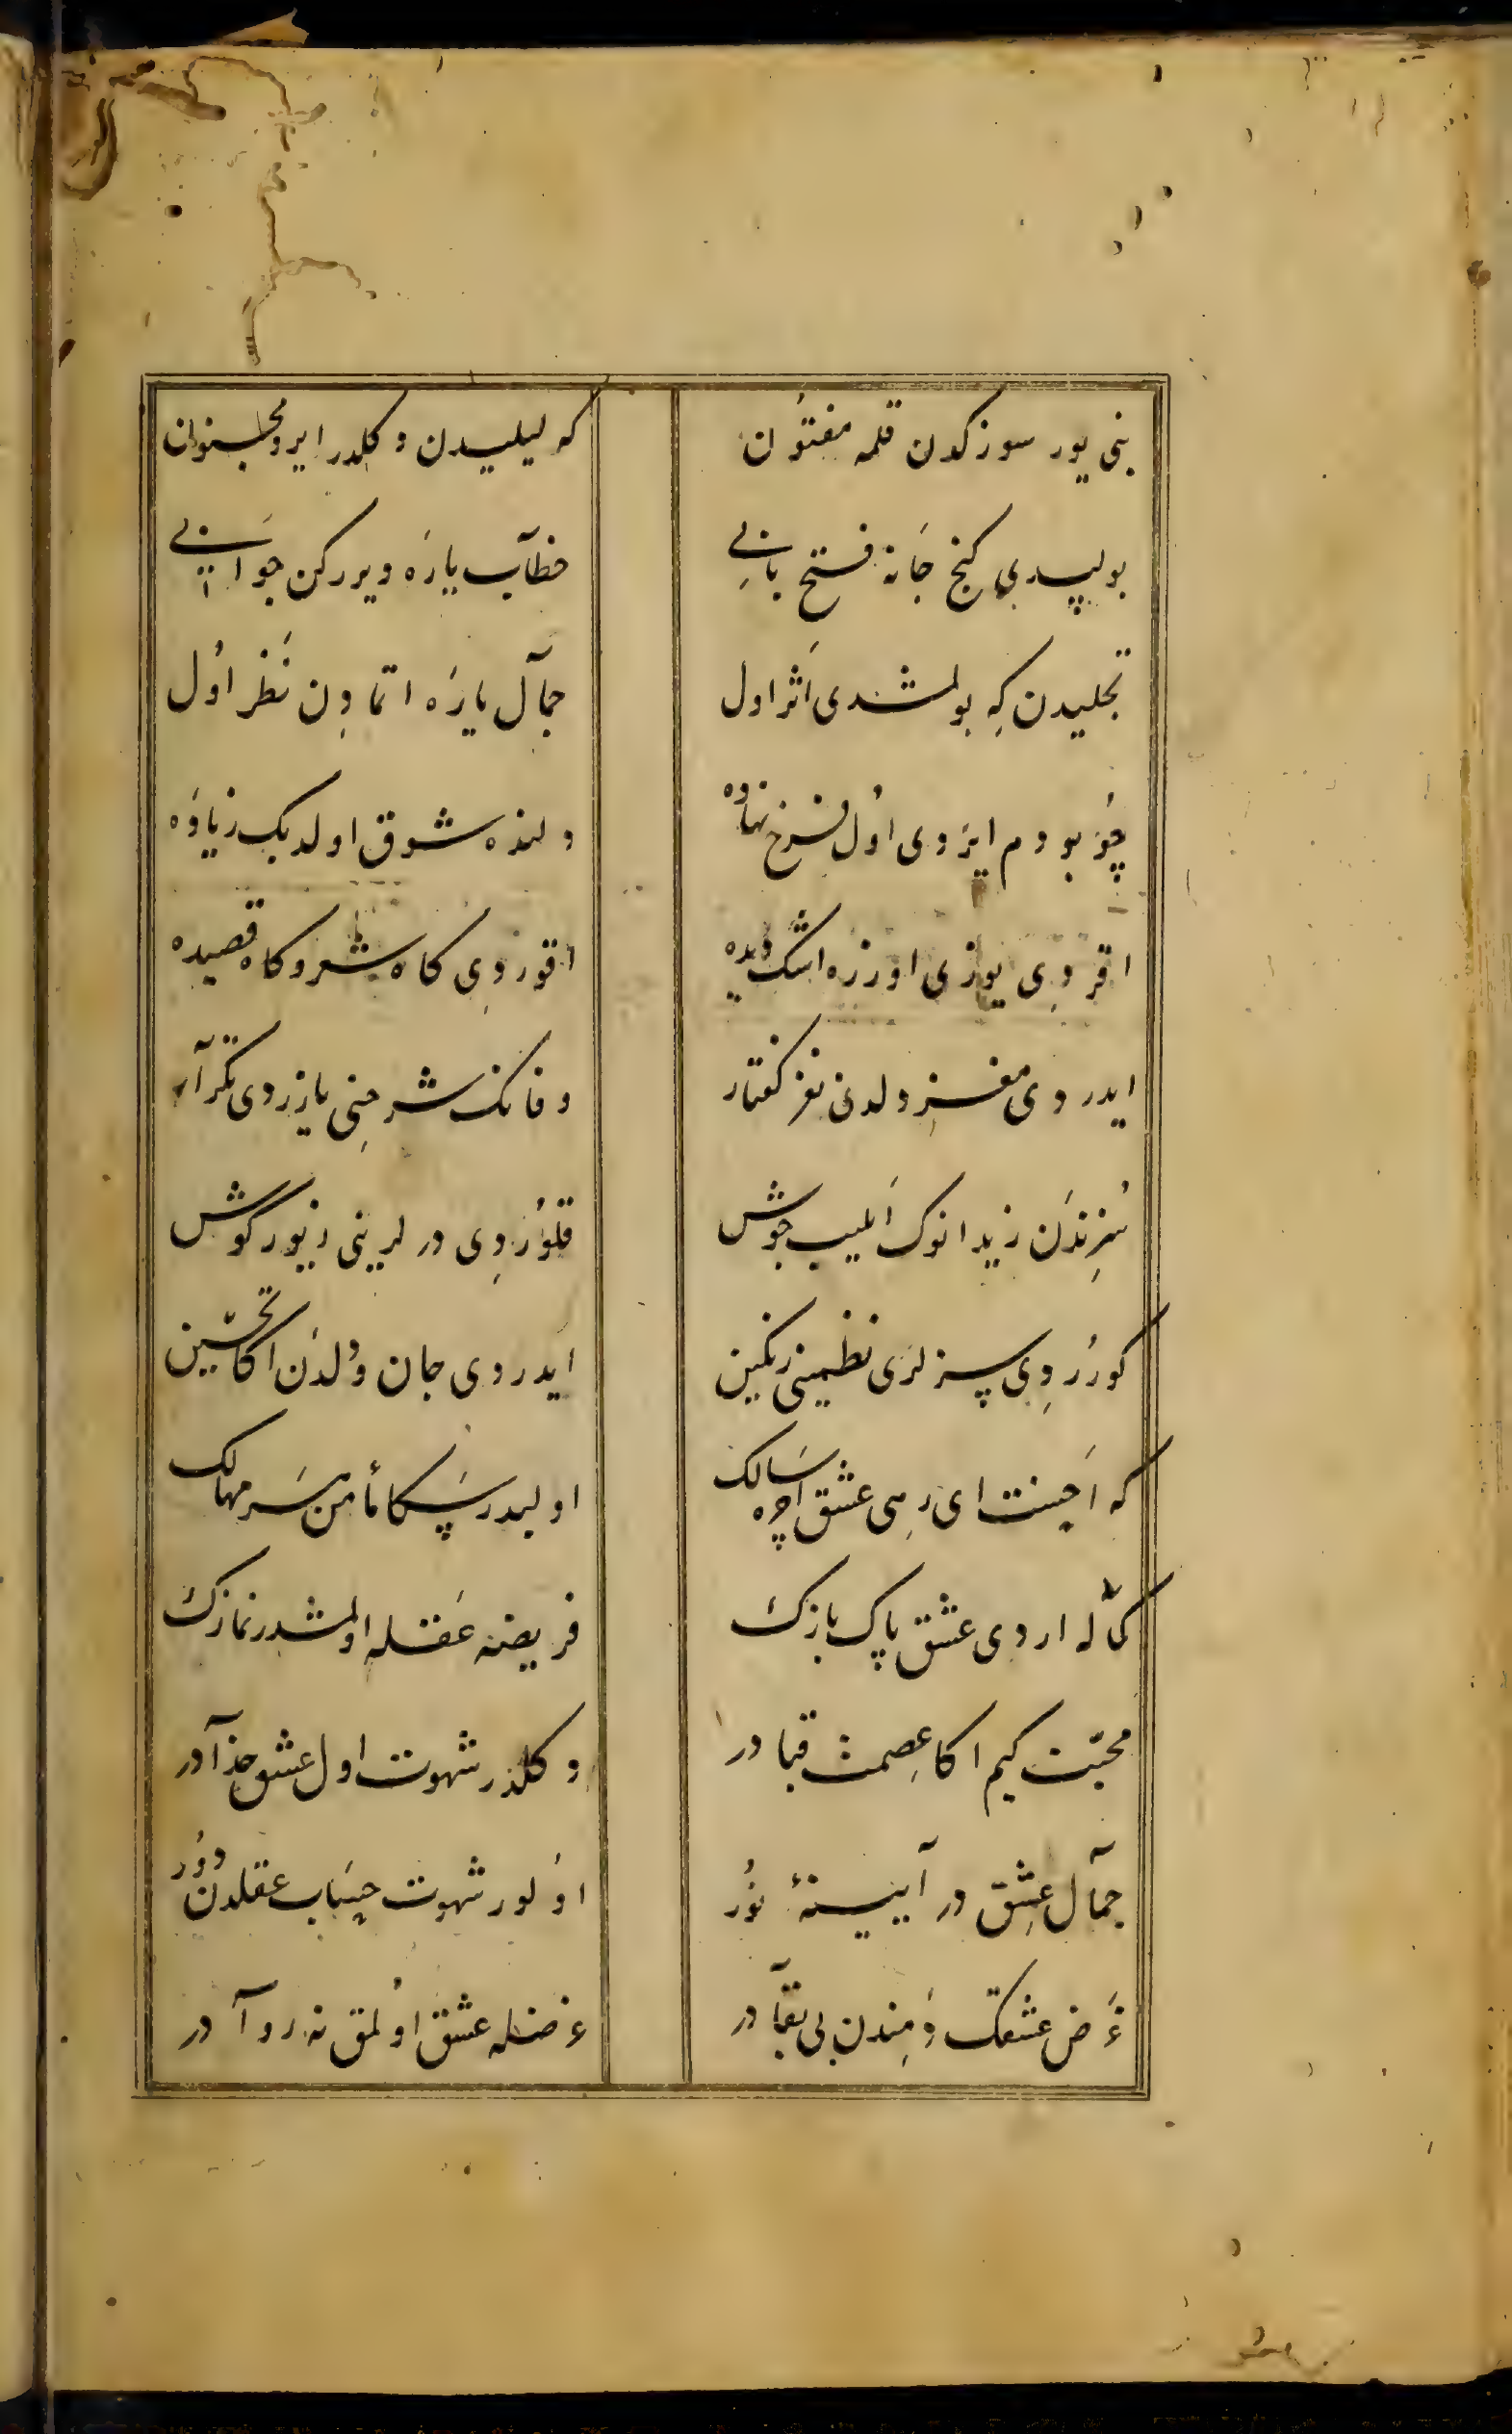 بنی یور سوزکدن قلمه مفتون که لیلیدن دکلدر ایرو مجنون
بولیدی کنج جانه فتح بابی خطاب یاره ویررکن جوابی
تجلیدن که بولمشدی اثر اول جمال یاره اتمادن نظر اول
چو بو دم ایردی اول فرخ نهاده دلنده شوق اولدیک زیاده
اقردی یوزی اوزره اشک دیده اقوردی کاه شعر و کاه قصیده
ایدردی مغز دلدن نغز کفتار وفانک شرحنی یازردی تکرار
سوزندن زیدانوک ایلیب جوش قلوردی درلرینی زیور کوش
کورردی سزلری نظمینی رنکین ایدردی جان و دلدن اکا تحسین
که احسنت ای رسی عشق اچره سالک اولیدر سکا مأمن سر مهالک
کماله اردی عشق پاک بازک فریضه عقله اولمشدر نمازک
محبت کیم اکا عصمت قبادر دکلدر شهوت اول عشق خدادر
جمال عشق در آیینهٔ نور اولور شهوت حساب عقلدن دور
غرض عشقک دمندن بی بقادر غرضله عشق اولمق نه روادر